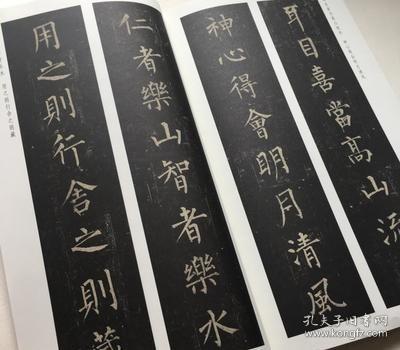 耳目喜當高山流
神心得會明月清風
仁者樂山智者樂水
用之則行舍之則藏
用之則行舍之則藏
孔夫子旧书网